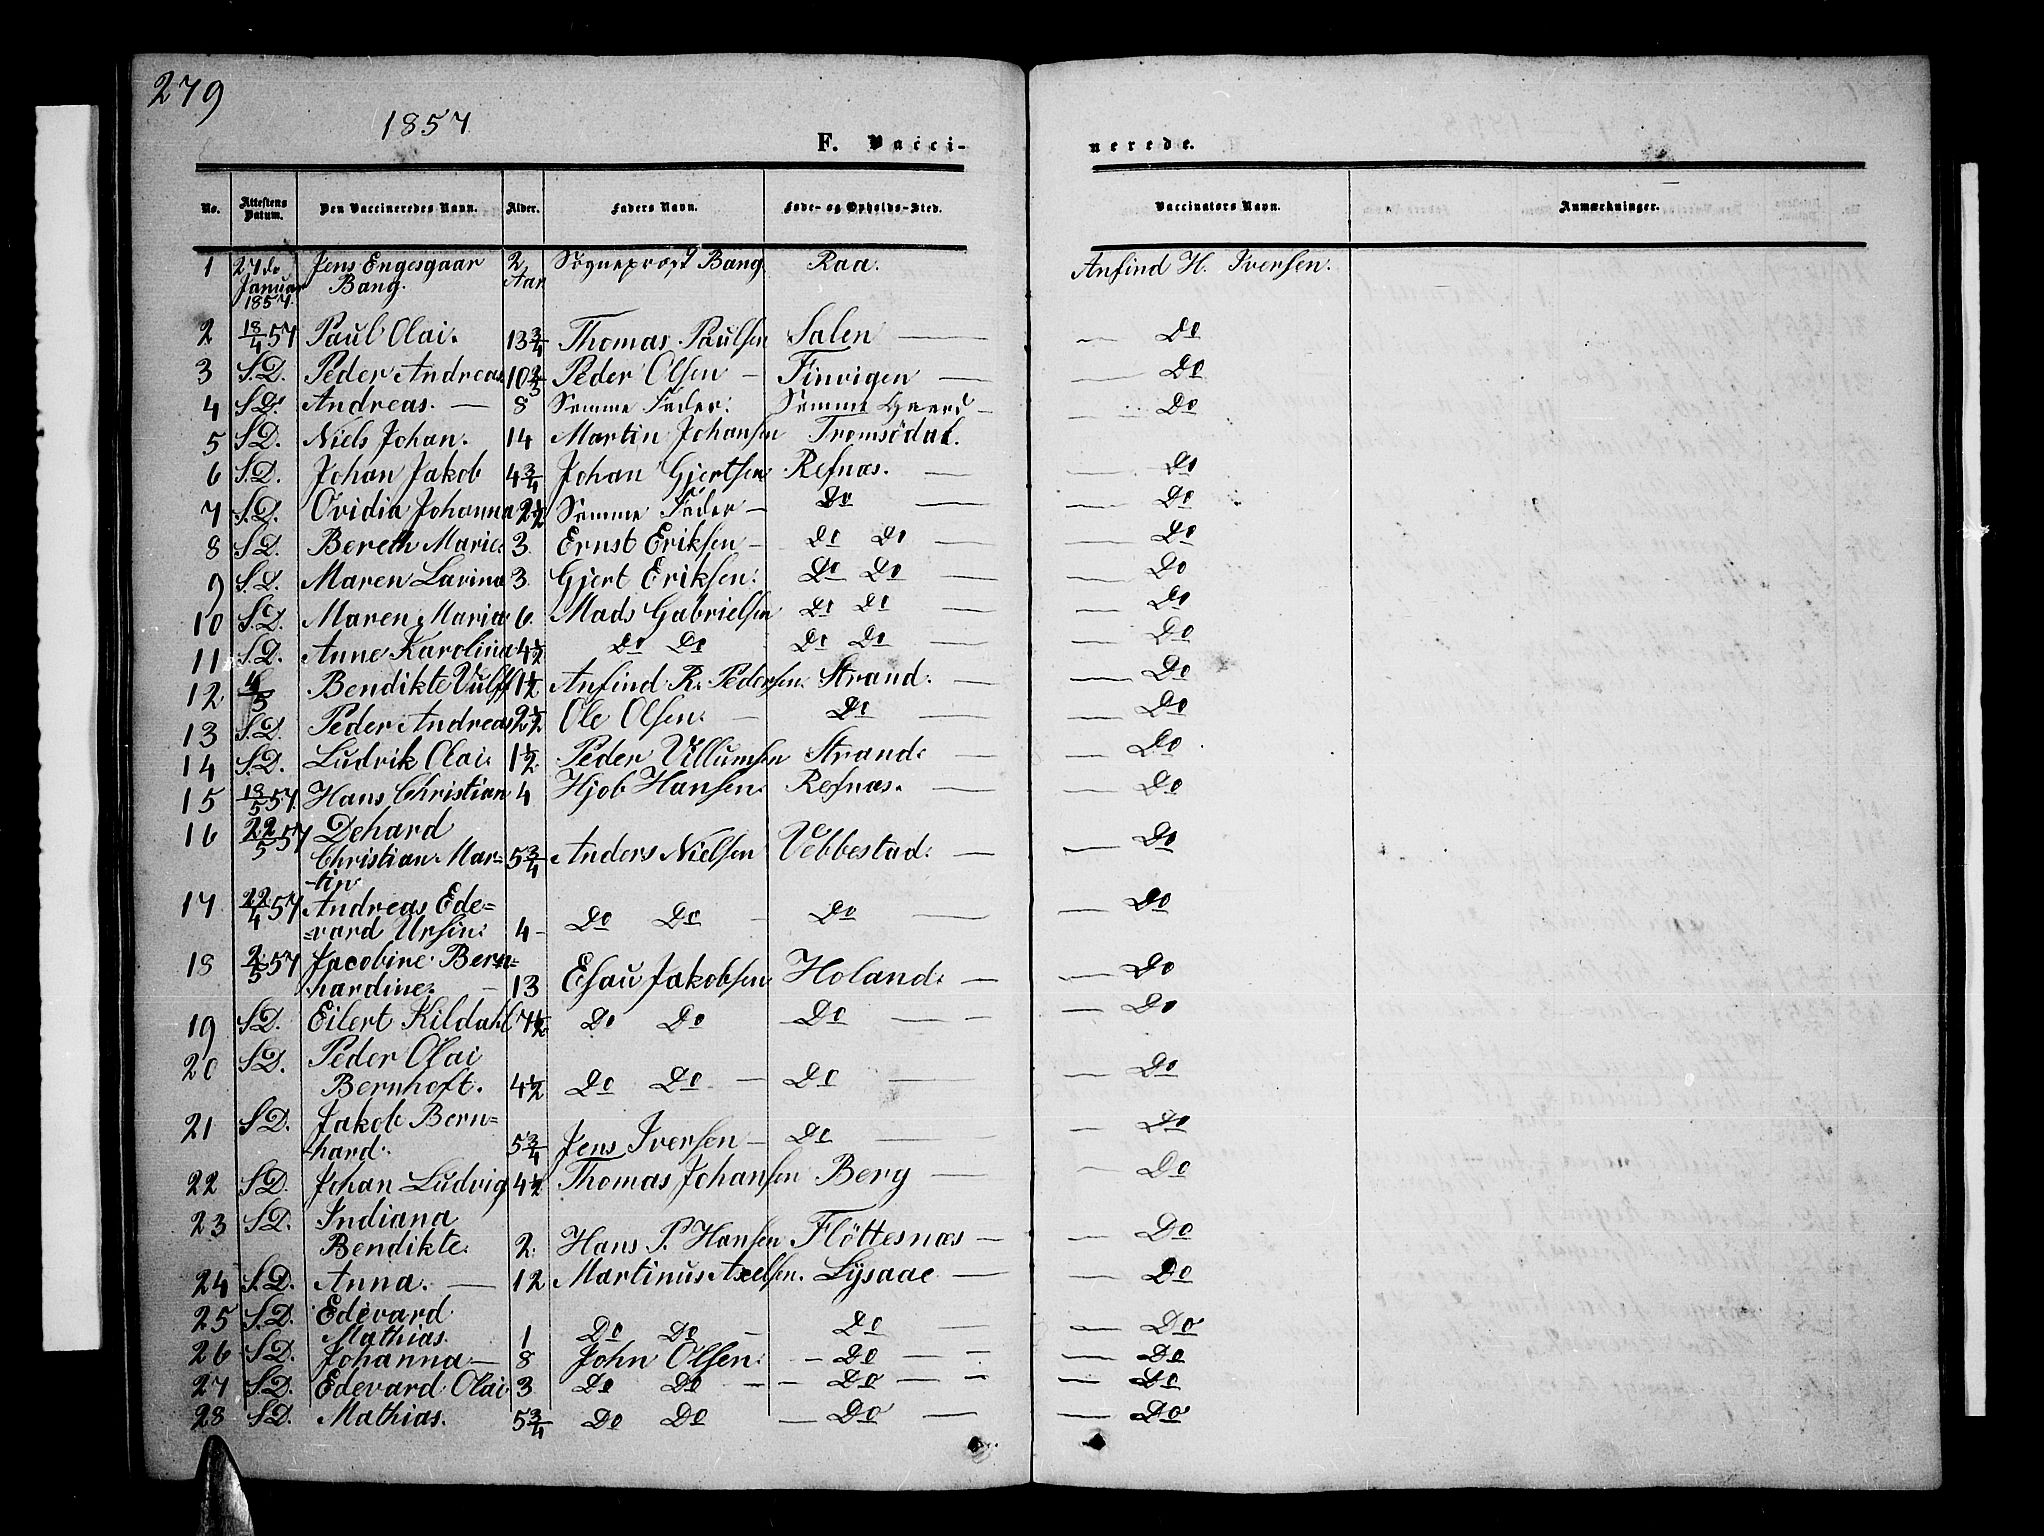 279
1857
F. Vacci-
nerede.
No. Attestens Datum. Den Vaccineredes Navn. Alder. Faders Navn. Føde- og Opholds-Sted. Vaccinators Navn. Anmærkninger.
1 27de Januar 1857. Jens Engesgaar Bang. 2 Aar Sogneprost Bang Raa. Anfind H. Iversen.
2 18/4 57 Paul Olai. 13 3/4 Thomas Paulsen Salen — — Do
3 S.D. Peder Andreas 10 2/3 Peder Olsen — Finvigen — — Do
4 S.D. Andreas. — 8 Samme Fader. Samme Gaard — — Do
5 S.D. Niels Johan. 14 Martin Johansen Tromsödal.
6 S.D. Johan Jakob 4 3/4 Johan Gjertsen Refnæs. — — Do
7 S.D. Ovidia Johanna 2 1/2 Samme Fader — Do — — Do
8 S.D. Bereth Marie. 3 Ernst Eriksen — Do Do — — Do
9 S.D. Maren Lavina 3 Gjert Eriksen: Do Do — — Do
10 S.D. Maren Maria 6 Mads Gabrielsen Do Do — — Do
11 S.D. Anne Karolina 4 1/2 Do Do Do Do — — Do
12 4/5 Bendikte Vulff 1 1/2 Anfind R. Pedersen. Strand. — — Do
13 S.D. Peder Andreas 2 1/2 Ole Olsen. — Do — — Do
14 S.D. Ludvik Olai. 1 1/2 Peder Villumsen Strand. — — Do
15 18/5 57. Hans Christian 4 Hjob Hansen. Refnæs. — — Do
16 22/5 57 Dehard Christian Mar-tin. 5 3/4 Anders Nielsen Vebbestad. — — Do
17 22/4 57 Andreas Ede=vard Ursin: 4 — Do Do — Do — — Do
18 2/5 57 Jacobine Bern=hardine. — 13 Esau Jakobsen Holand. — — Do
19 S.D. Eilert Kildahl 7 1/2 Do Do — Do — — — Do
20 S.D. Peder Olai Bernhoft. 4 1/2 Do Do — Do — — Do
21 S.D. Jakob Bern=hard. 5 3/4 Jens Iversen — Do — — Do
22 S.D. Johan Ludvig 4 1/2 Thomas Johansen Berg — — Do
23 S.D. Indiana Bendikte. 2. Hans P. Hansen Flöttesnæs — — Do
24 S.D. Anna. — 12 Martinus Axelsen. Lysaae — — Do
25 S.D. Edevard Mathias. 1 Do Do — Do — — Do
26 S.D. Johanna — 8 John Olsen: — Do — — — Do
27 S.D. Edevard Olai 3 Do Do — — Do — — — Do
28 S.D. Mathias. 5 3/4 Do Do — Do — — Do